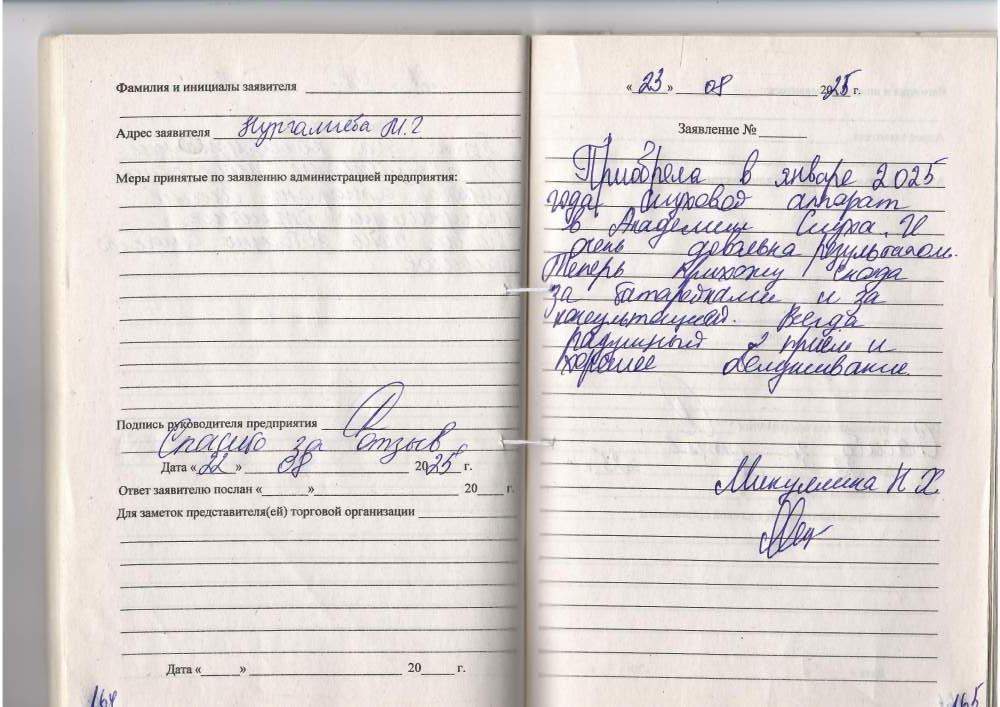 Фамилия и инициалы заявителя
Адрес заявителя Нургалиева М.Г
Меры принятые по заявлению администрацией предприятия:
Подпись руководителя предприятия
Спасибо за отзыв
Дата « 22 » 08 2025 г.
Ответ заявителю послан « » 20 г.
Для заметок представителя(ей) торговой организации
Дата « » 20 г.
164
« 23 » 08 2025 г.
Заявление №
Приобрела в январе 2025
года слуховой аппарат
в Академии Слуха. И
очень довольна результатом.
Теперь прихожу сюда
за батарейками и за
консультацией. Всегда
радушный приём и
хорошее обслуживание.
Минуллина Н Х.
165